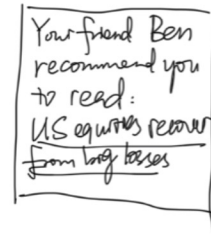 Your friend Ben
recommend you
to read:
US equities recover
from big losses